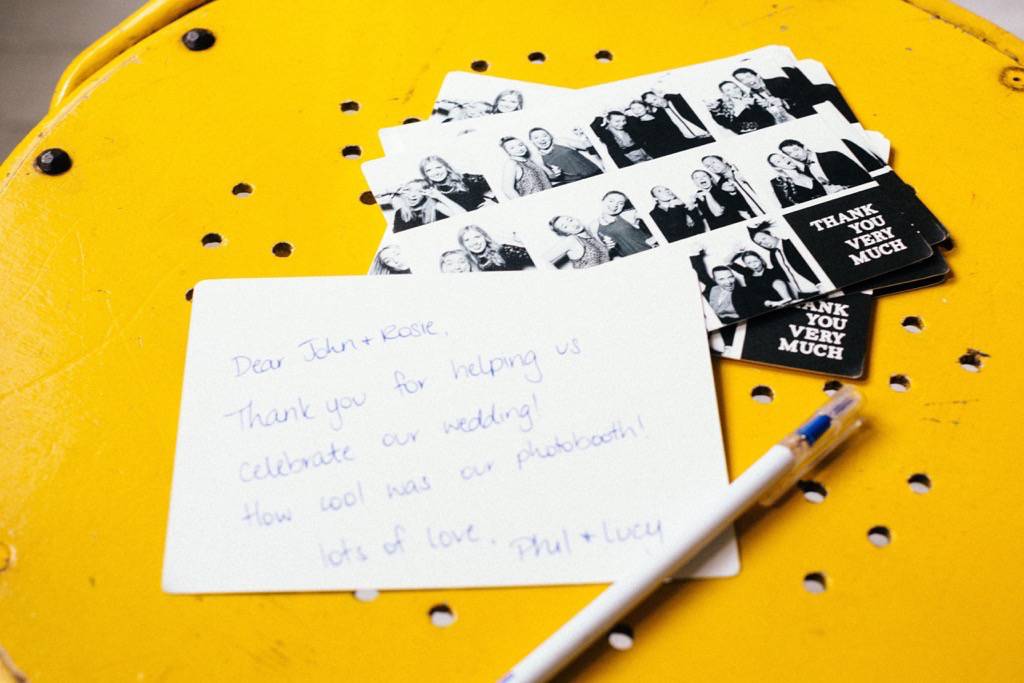 THANK
YOU
VERY
MUCH
THANK
YOU
VERY
MUCH
Dear John + Rosie,
Thank you for helping us
celebrate our wedding!
How cool was our photobooth!
lots of love, Phil + Lucy